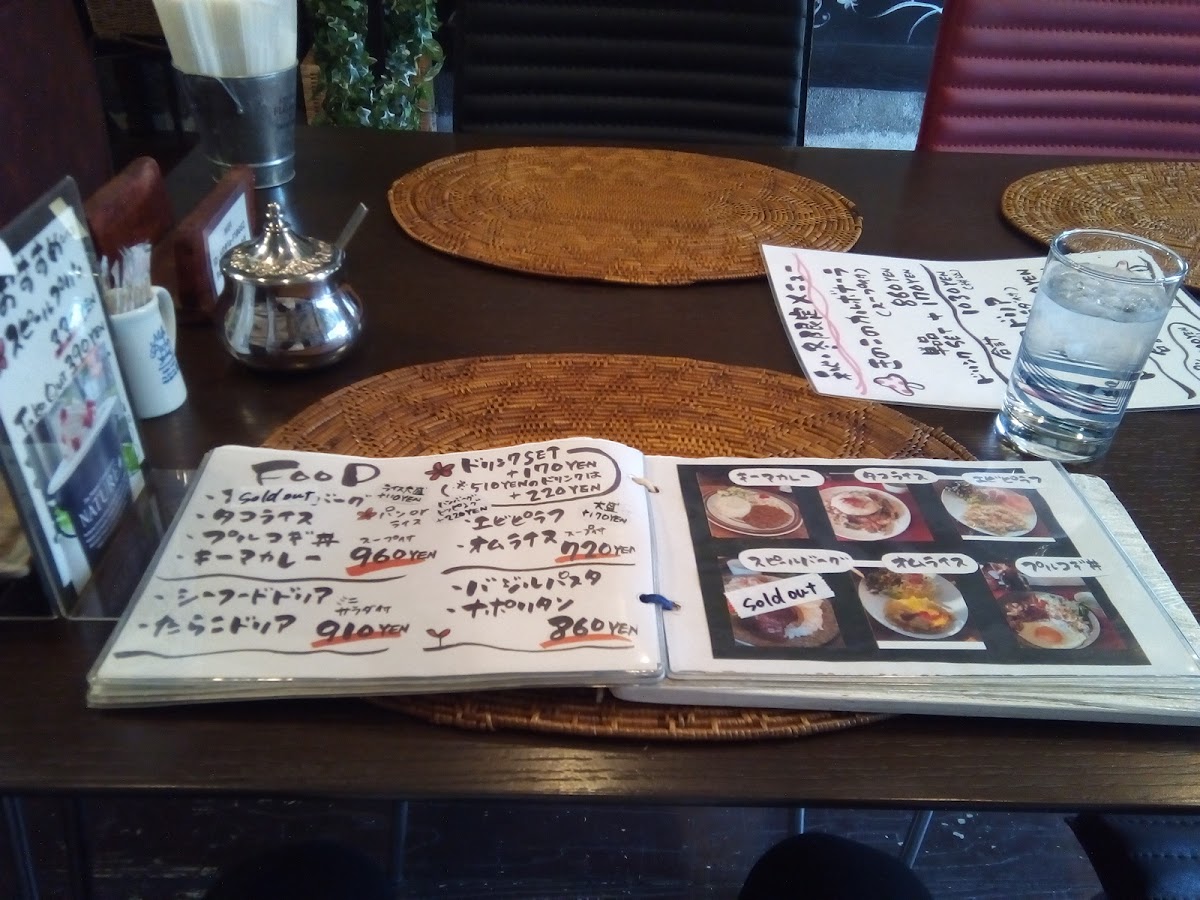 FOOD
sold out バーグ
ライス大盛
+110YEN
・タコライス
パン or
ライス
・プルコギ丼
スープ付
・キーマカレー 960YEN
・シーフードドリア
ミニ
サラダ付
・たらこドリア 910YEN
ドリンクSET
+170YEN
(※510YENのドリンクは
+220YEN
ハンバーグ
トッピング
+220YEN
・エビピラフ
大盛
+170YEN
・オムライス
スープ付
770YEN
・バジルパスタ
・ナポリタン
860YEN
キーマカレー
タコライス
エビピラフ
スピルバーグ
sold out
オムライス
プルコギ丼
限定メニュー
きのこのカルボナーラ
(スープ付)
単品 860YEN
ドリンクSET +170YEN
合計 1030YEN
ドリア
おすすめ
Take Out 390YEN
NATURE